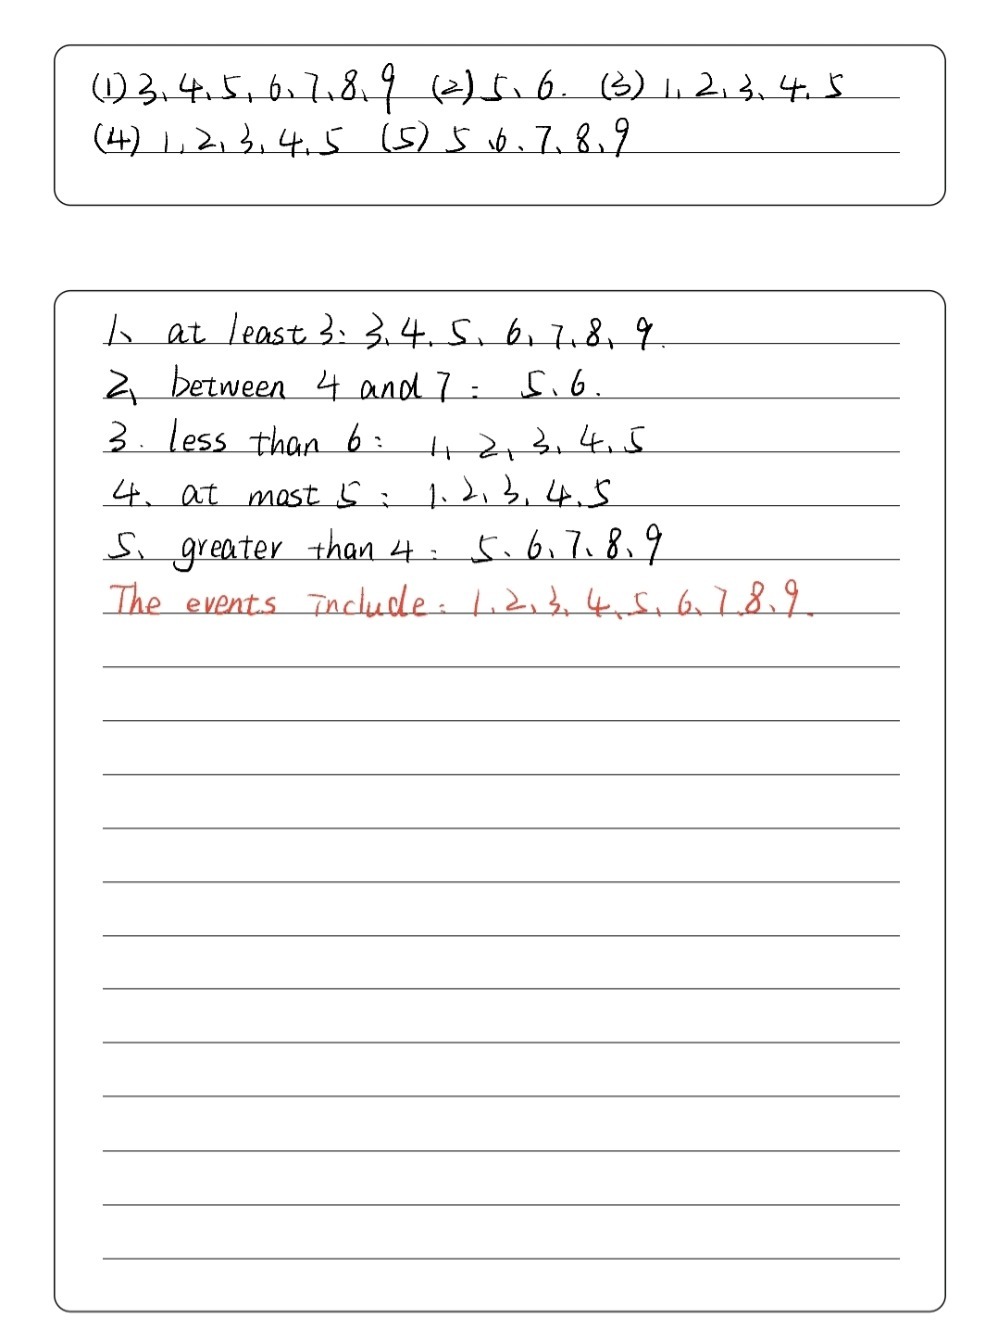 (1) 3、4、5、6、7、8、9 (2) 5、6. (3) 1、2、3、4、5
(4) 1、2、3、4、5 (5) 5、6、7、8、9
1、at least 3: 3、4、5、6、7、8、9.
2、between 4 and 7: 5、6.
3. less than 6: 1、2、3、4、5
4、at most 5: 1、2、3、4、5
5、greater than 4: 5、6、7、8、9
The events include: 1、2、3、4、5、6、7、8、9.